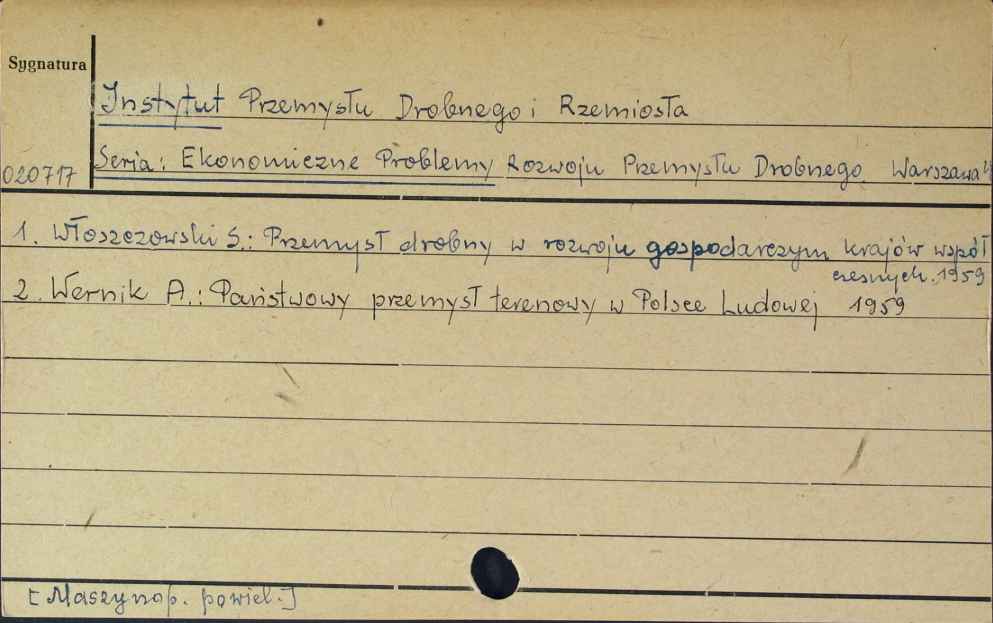 Sygnatura
Instytut Przemysłu Drobnego i Rzemiosła
Seria: Ekonomiczne Problemy Rozwoju Przemysłu Drobnego Warszawa
020717
1. Włoszczowski S.: Przemysł drobny w rozwoju gospodarczym krajów współ
czesnych. 1959
2. Wernik A.: Państwowy przemysł terenowy w Polsce Ludowej 1959
[Maszynop. powiel.]